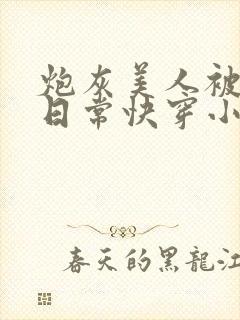 炮灰美人被
日常快穿小
春天的黑龍江